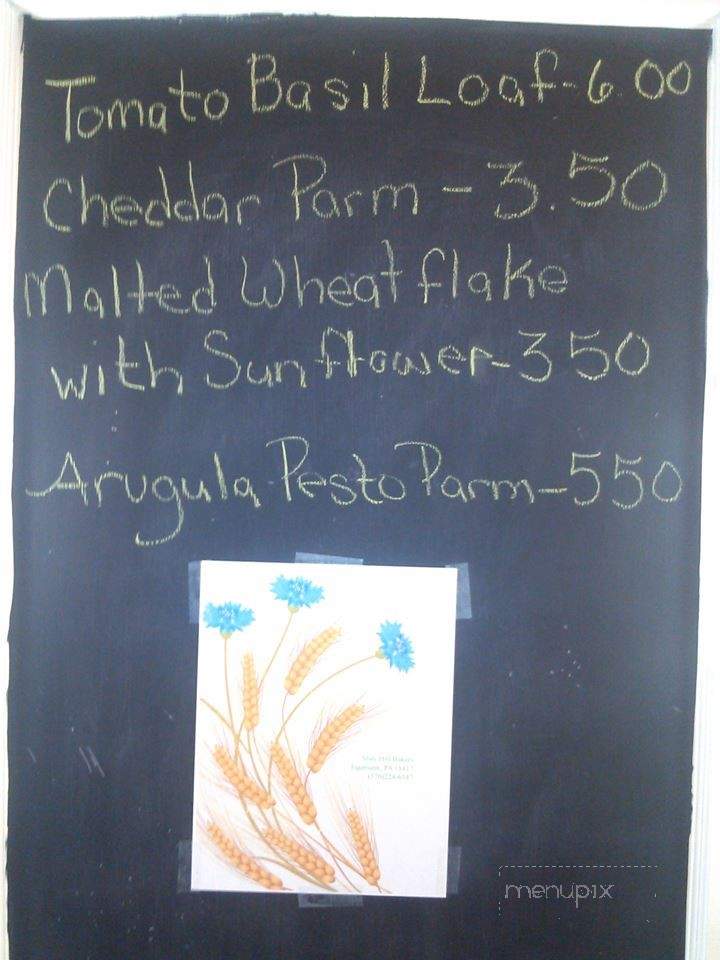 Tomato Basil Loaf-6.00
Cheddar Parm - 3.50
Malted Wheat flake
with Sunflower-3 50
Arugula Pesto Parm-550
menupix